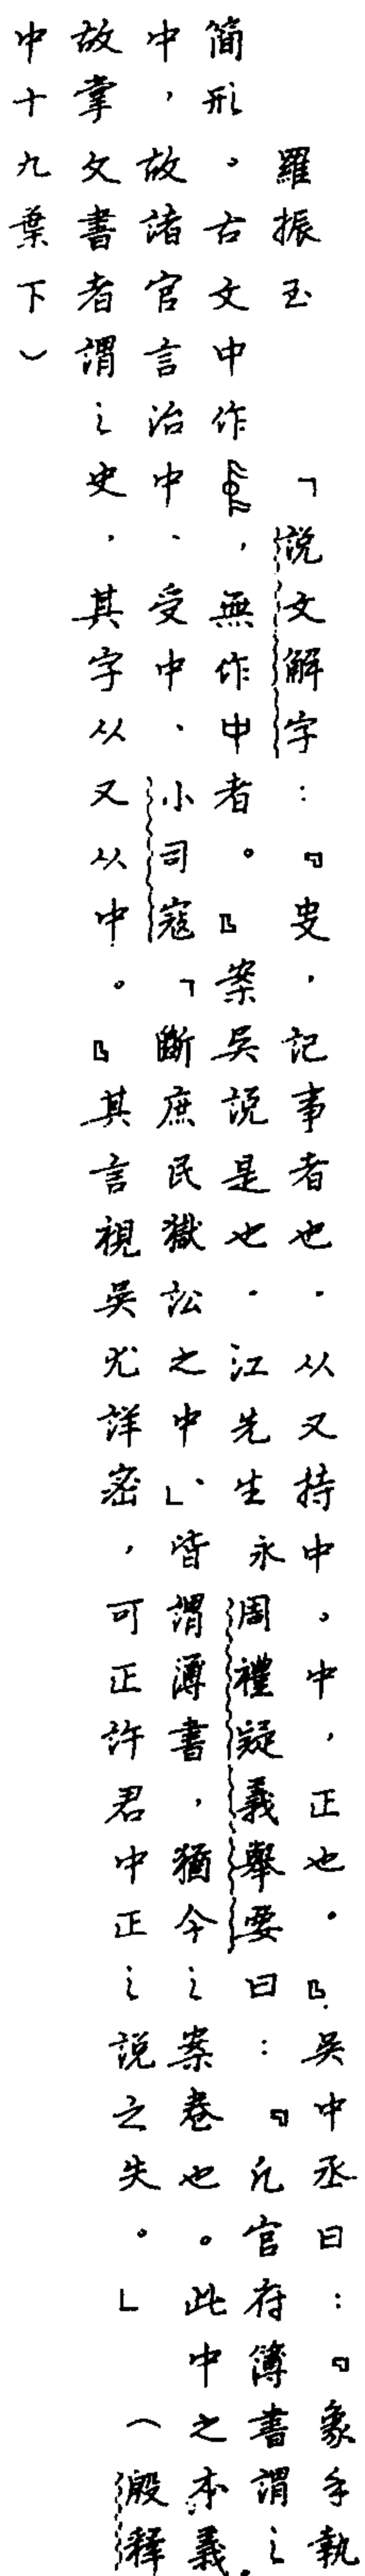 羅振玉　「說文解字：『㕜，記事者也．从又持中。中，正也．』吳中丞曰：『象手執
簡形。古文中作𠁩，無作中者。』案吳說是也．江先生永周禮疑義舉要曰：『凡官府簿書謂之
中，故諸官言治中、受中、小司寇「斷庶民獄訟之中」、皆謂簿書，猶今之案卷也。此中之本義
故掌文書者謂之史．其字从又从中。』其言視吳尤詳密，可正許君中正之說之失。」（殷釋
中十九葉下）